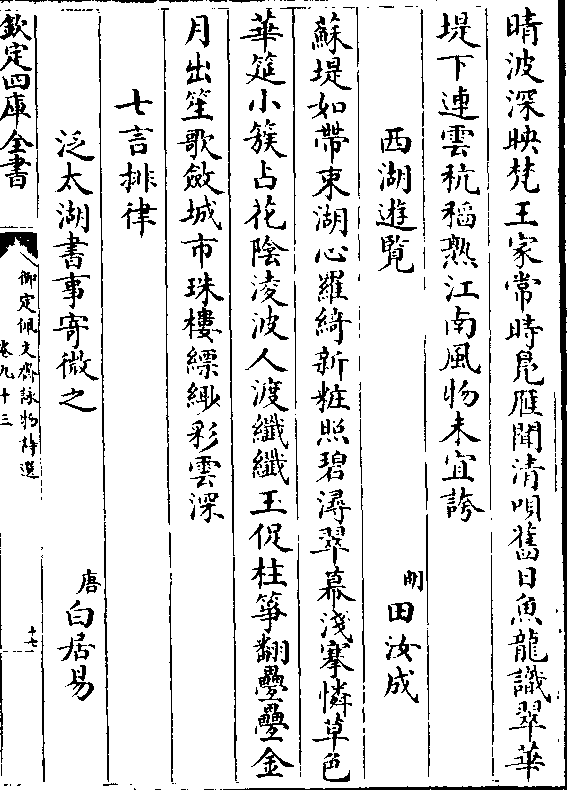 晴波深映梵王家常時鳬雁聞清唄舊日魚龍識翠華
堤下連雲秔稻熟江南風物未宜誇
西湖遊覧 明 田汝成
蘇堤如帶東湖心羅綺新粧照碧潯翠幕淺搴憐草色
華筵小簇占花陰淩波人渡纖纖玉促柱箏翻疊疊金
月出笙歌斂城市珠樓縹緲彩雲深
七言排律
泛太湖書事寄微之 唐 白居易
欽定四庫全書 御定佩文齋詠物詩選 卷九十三 十七